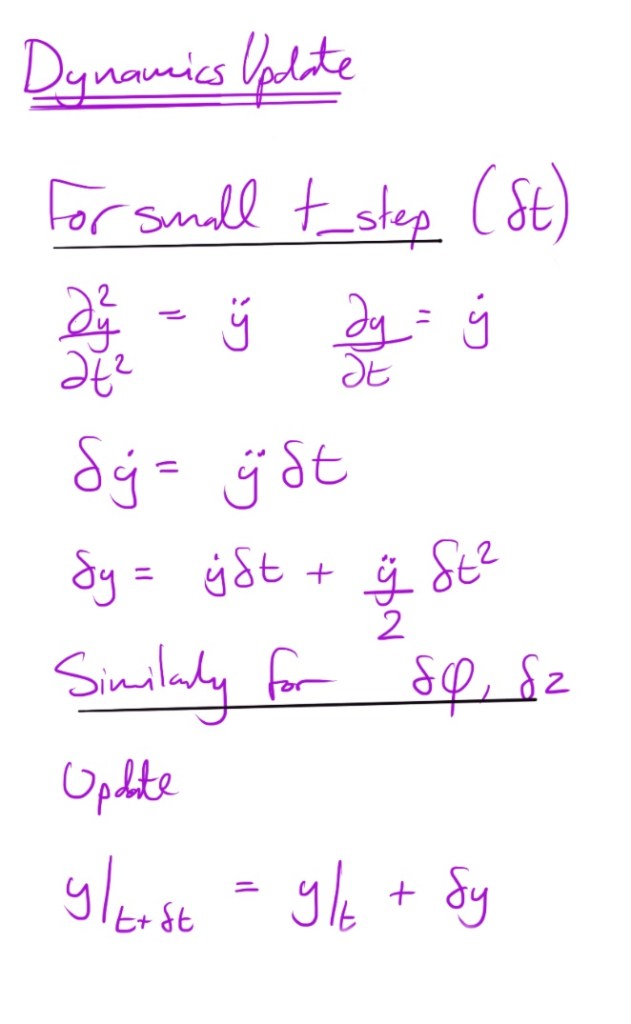 Dynamics Update
For small t_step (δt)
∂²y/∂t² = ÿ   ∂y/∂t = ẏ
δẏ = ÿ δt
δy = ẏδt + ÿ/2 δt²
Similarly for δφ, δz
Update
y|t+δt = y|t + δy